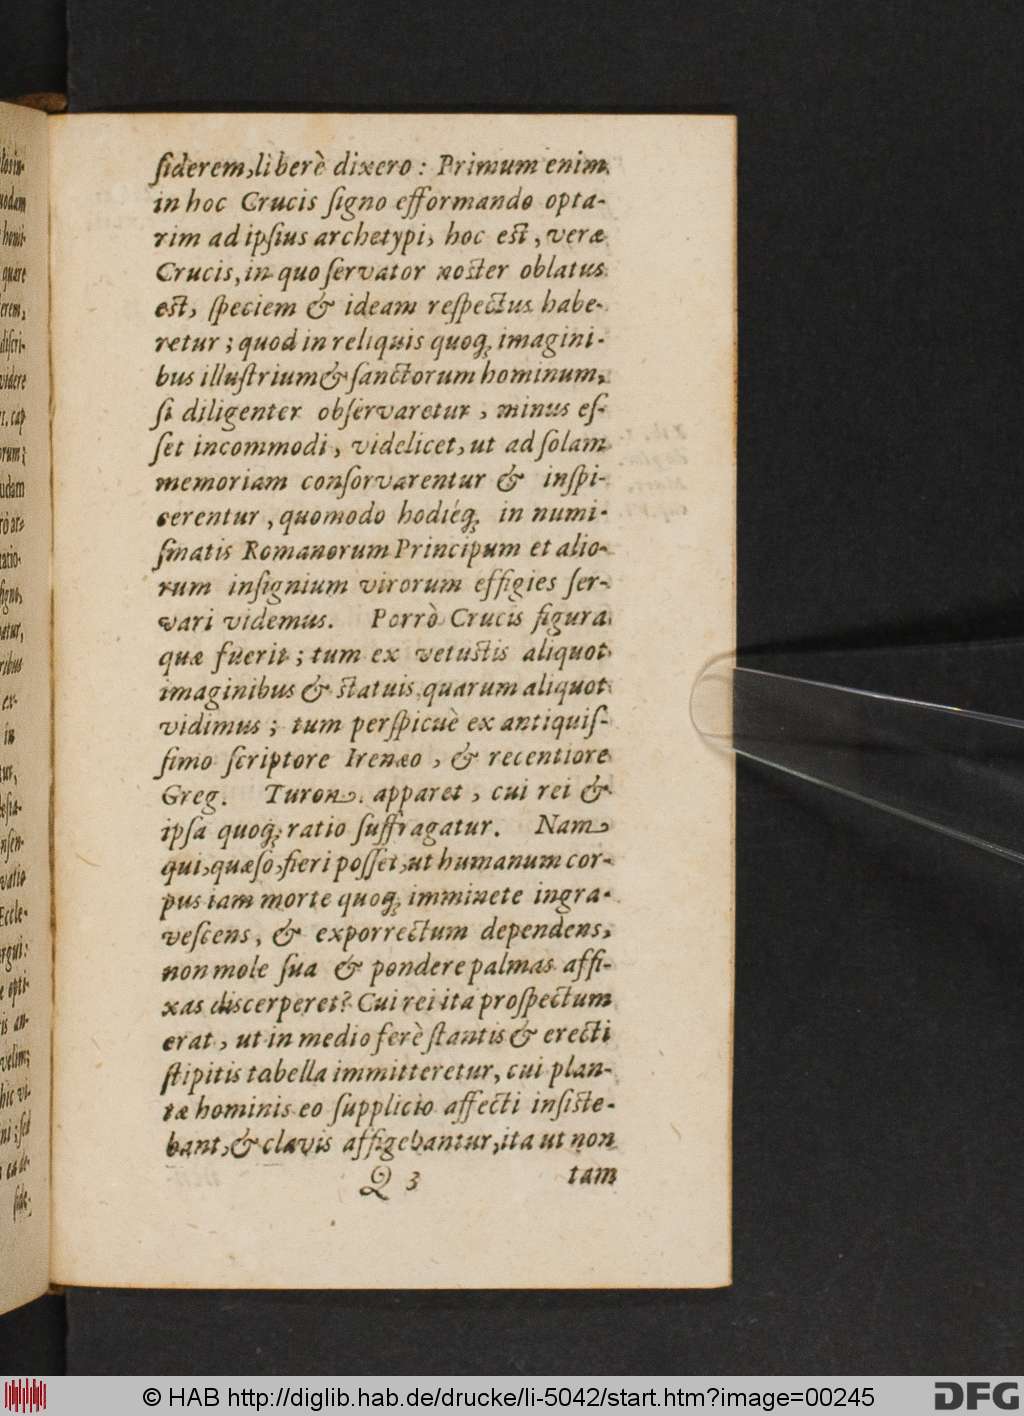 ſiderem, liberè dixero: Primum enim
in hoc Crucis ſigno efformando opta-
rim ad ipſius archetypi, hoc est, veræ
Crucis, in quo ſervator noster oblatus
est, ſpeciem & ideam reſpectus habe-
retur; quod in reliquis quoq; imagini-
bus illuſtrium & ſanctorum hominum,
ſi diligenter obſervaretur, minus eſ-
ſet incommodi, videlicet, ut ad ſolam
memoriam conſervarentur & inſpi-
cerentur, quomodo hodiéq; in numi-
ſmatis Romanorum Principum et alio-
rum inſignium virorum effigies ſer-
vari videmus. Porrò Crucis figura
quæ fuerit; tum ex vetustis aliquot
imaginibus & statuis quarum aliquot
vidimus; tum perſpicuè ex antiquiſ-
ſimo ſcriptore Irenæo, & recentiore
Greg. Turon. apparet, cui rei &
ipſa quoq; ratio ſuffragatur. Nam
qui, quæſo, fieri poſſet, ut humanum cor-
pus iam morte quoq; imminēte ingra-
veſcens, & exporrectum dependens,
non mole ſua & pondere palmas affi-
xas discerperet? Cui rei ita proſpectum
erat, ut in medio ferè ſtantis & erecti
ſtipitis tabella immitteretur, cui plan-
tæ hominis eo ſupplicio affecti inſiste-
bant, & clavis affigebantur, ita ut non
Q 3 tam
© HAB http://diglib.hab.de/drucke/li-5042/start.htm?image=00245
DFG